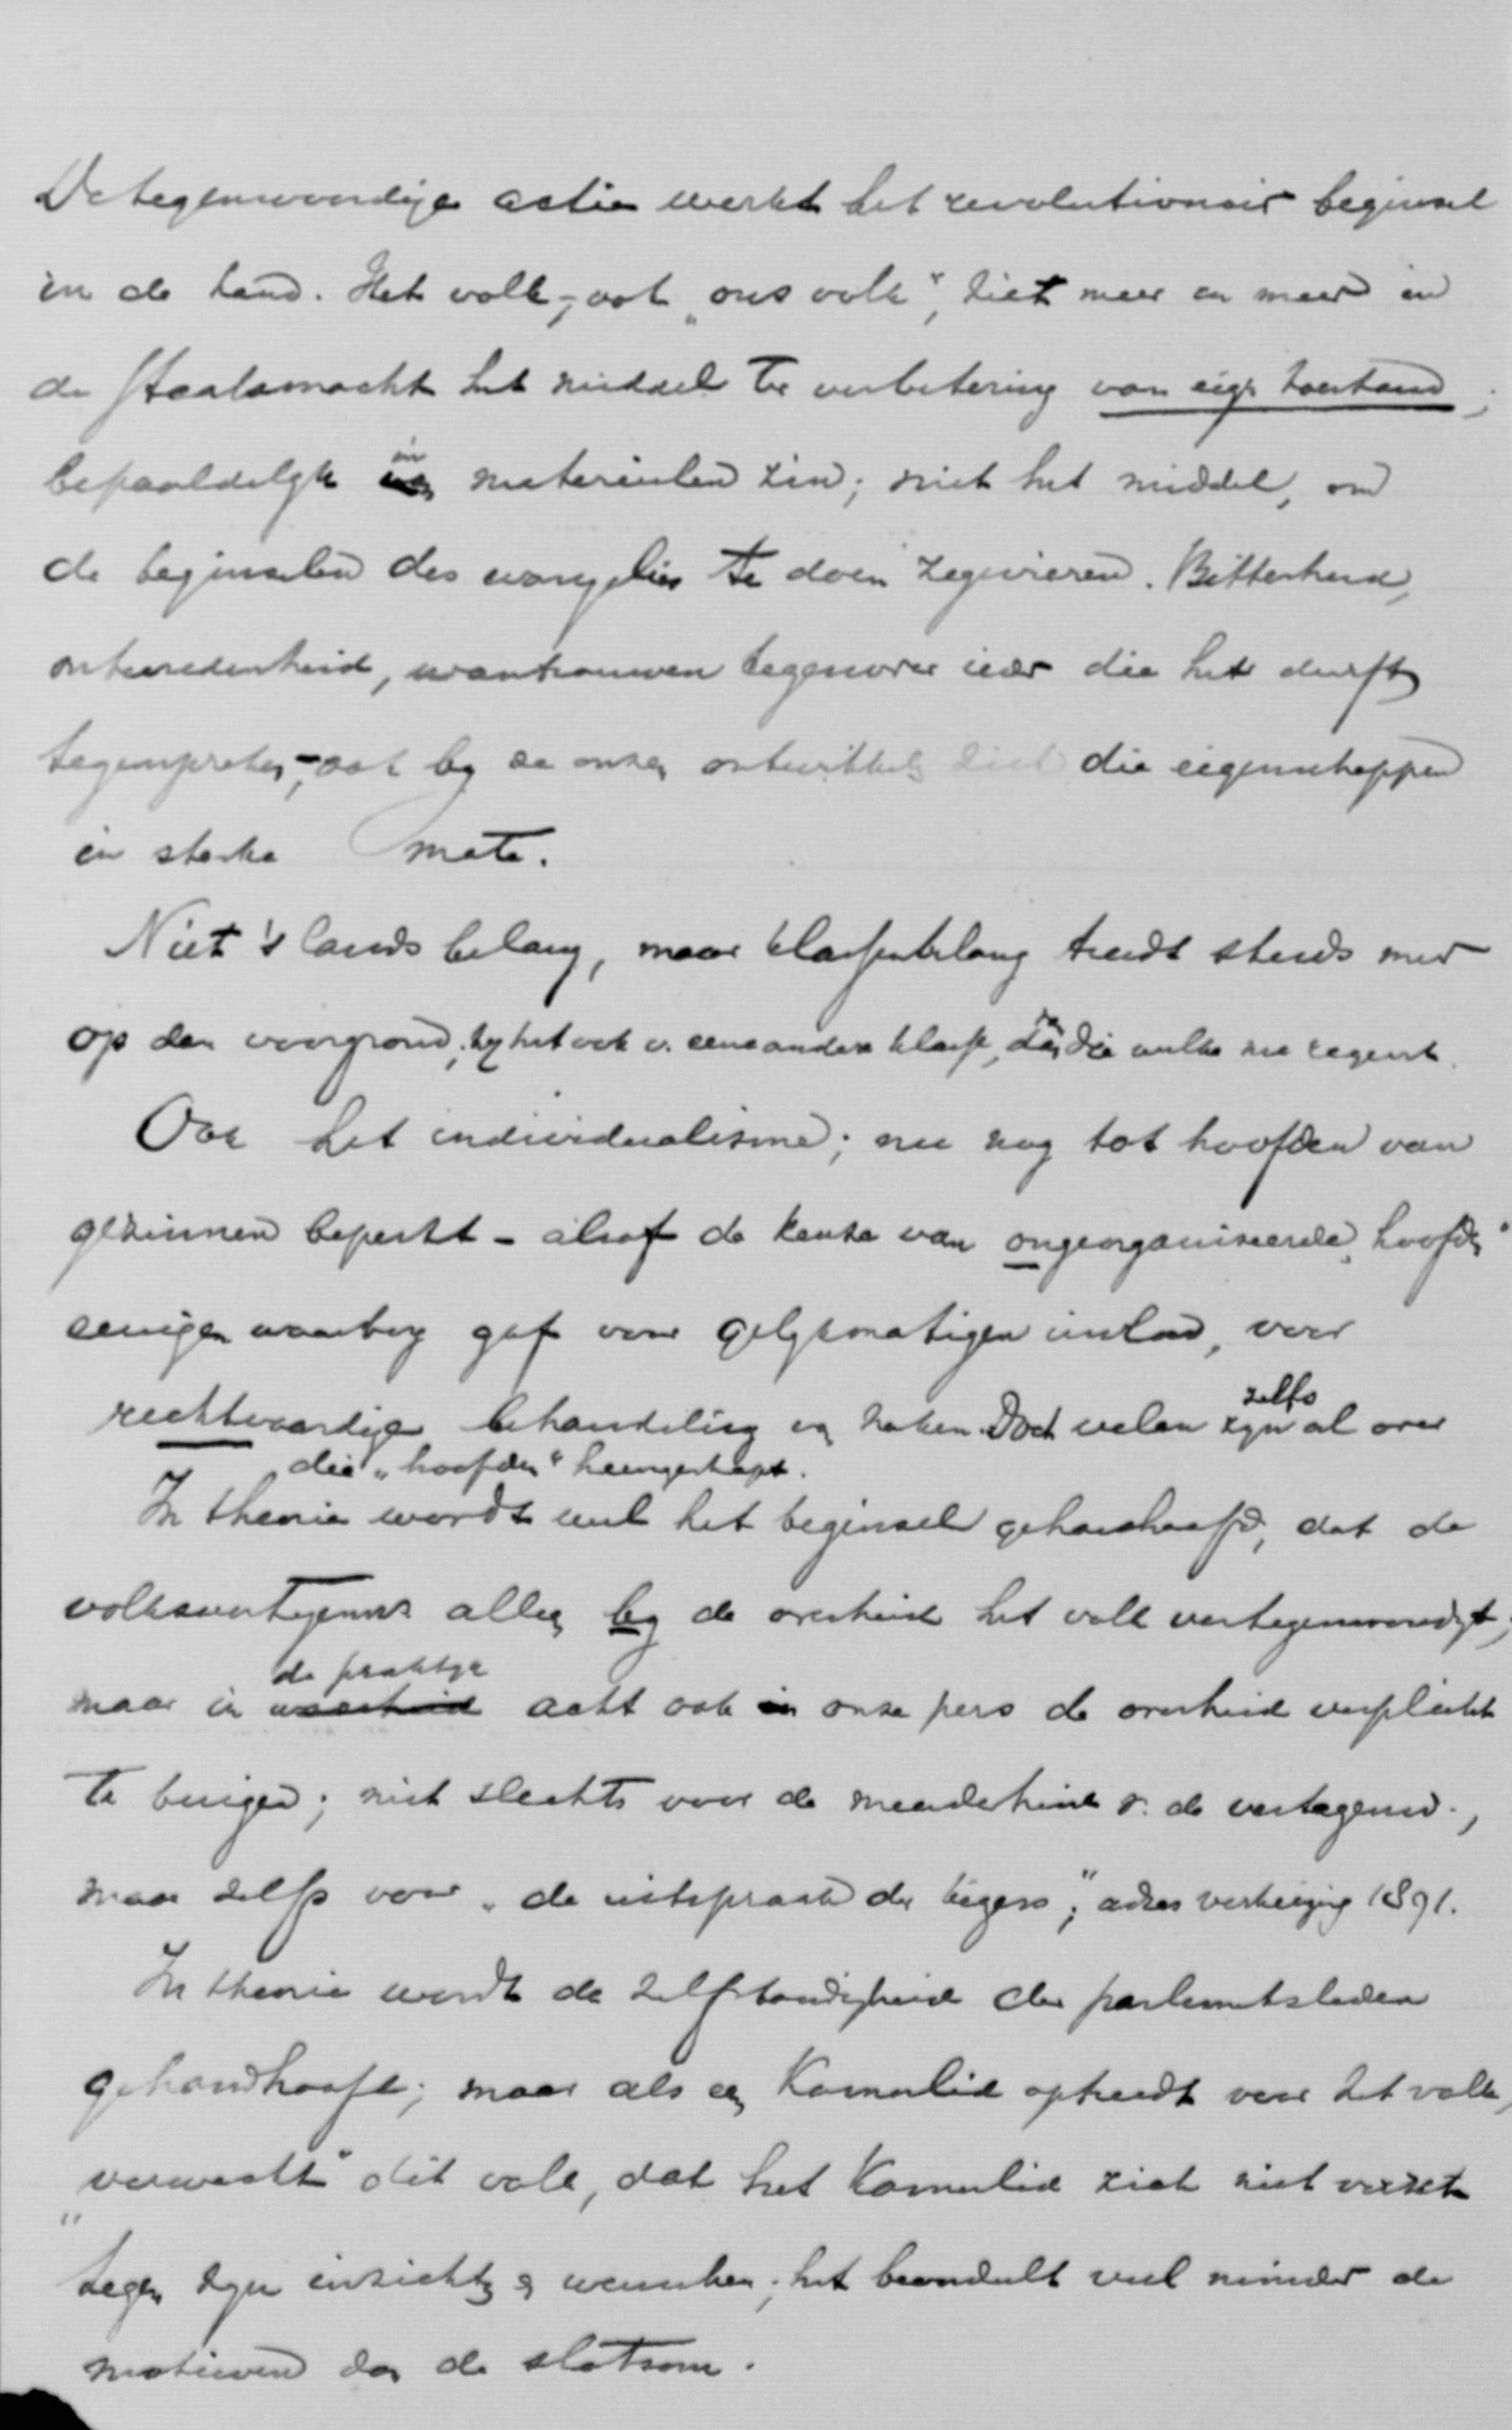 De tegenwoordige actie werkt het revolutionair beginsel
in de hand. Het volk, - ook "ons volk", ziet meer en meer in
de Staatsmacht het middel ter verbetering van eigen toestand;
bepaaldelijk in materieelen zin; niet het middel, om
de beginselen des evangelies te doen zegevieren. Bitterheid,
ontevredenheid, wantrouwen tegenover ieder die het durft
tegenspreken, - ook by de onzen ontwikkelen zich die eigenschappen
in sterke mate.
Niet 's lands belang, maar klassenbelang treedt steeds meer
op den voorgrond; zy het ook v. eene andere klasse, dan die welke nu regeert.
Ook het individualisme; nu nog tot hoofden van
gezinnen beperkt - alsof de keuze van ongeorganiseerde "hoofden"
eenigen waarborg gaf voor gelykmatigen invloed, voor
rechtvaardige behandeling van zaken. Doch velen zyn zelfs al over
die "hoofden" heengestapt.
In theorie wordt wel het beginsel gehandhaafd, dat de
volksvertegenw. alleen by de overheid het volk vertegenwoordigt;
maar in de praktyk acht ook onze pers de overheid verplicht
te buigen; niet slechts voor de meerderheid v. de vertegenw.,
maar zelfs voor "de uitspraak der kiezers"; adres verkiezing 1891.
In theorie wordt de zelfstandigheid der parlementsleden
gehandhaafd; maar als een Kamerlid optreedt voor het volk,
"verwacht" dit volk, dat het Kamerlid zich niet verzet
tegen zyn inzichten en wenschen; het beoordeelt veel minder de
motieven dan de slotsom.